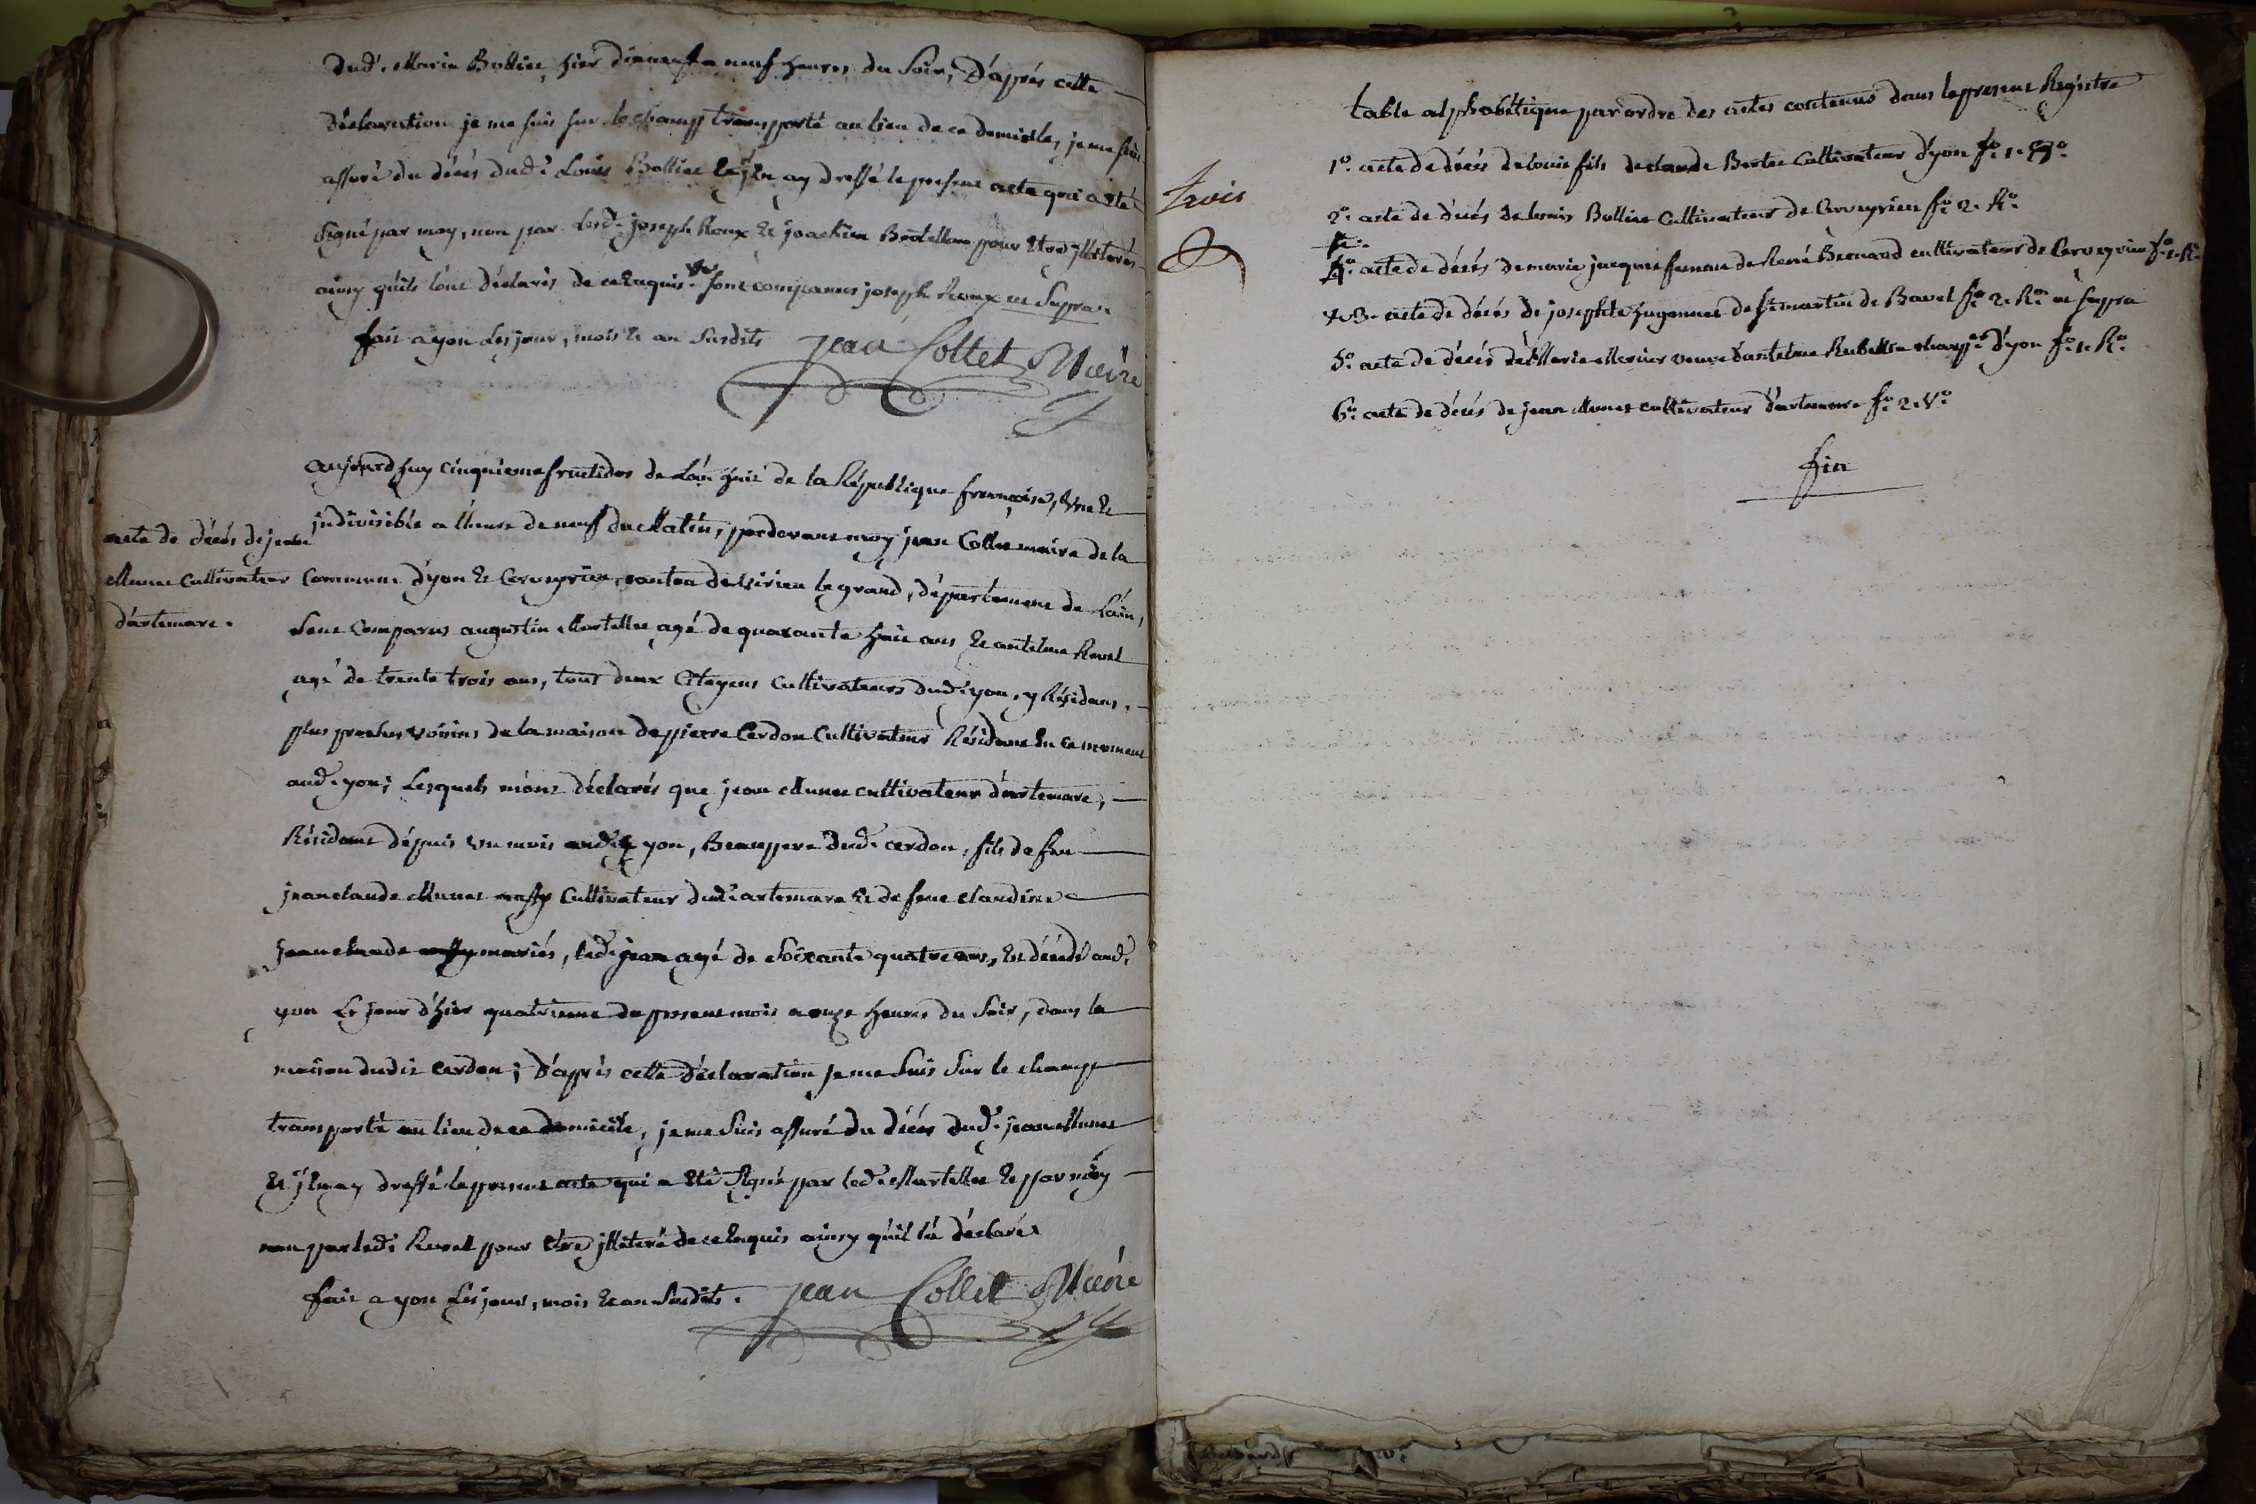 dud. Marin Bolliet, hier dimanche neuf heures du Soir, D'après cette
déclaration je me suis sur le champ transporté au lieu de ce domicile, je me suis
assuré du décés dud. Louis Bolliet et j'En ay dressé le present acte qui a eté
Signé par moy, non par Lesd. joseph Roux et joachim Berthellon pour etre jlliterés
ainsy qu'ils l'ont déclarés de ce Enquis. sont comparus joseph Roux ut Supra.
fait a yon Les jour, mois et an Susdits jean Collet Maire
acte de décés de jean
Munet Cultivateur
d'artemare.
aujourd'huy cinquieme fructidor de L'an huit de la République françoise, Une et
jndivisible a l'heure de neuf du Matin, pardevant moy jean Collet maire de la
Commune d'yon et Cerveyrieu, canton de Virieu le grand, département de L'ain,
Sont Comparus augustin Martellet agé de quarante huit ans et antelme Revel
agé de trente trois ans, tous deux Citoyens Cultivateurs dud. yon, y Résidans,
plus proches voisins de la maison de pierre Cerdon Cultivateur Résidant En ce moment
aud. yon; Lesquels m'ont déclarés que jean Munet cultivateur d'artemare,
Résidant dépuis un mois aud. yon, Beaupere dud. cerdon, fils de feu
jean claude Munet Cultivateur dud. artemare et de feue claudine
mariés, led. jean agé de Soixante quatre ans, Est décédé aud.
yon Le jour d'hier quatrieme du present mois a onze heures du Soir, dans la
maison dudit cerdon; D'après cette déclaration je me Suis Sur le champ
transporté au lieu de ce domicile, je me Suis assuré du décés dud. jean Munet
et j'En ay dressé le present acte qui a Eté Signé par led. Martellet et par moy
non par led. Revel pour etre jlliteré de ce Enquis ainsy qu'il l'a déclaré
fait a yon Les jour, mois et an Susdits. jean Collet Maire
trois
table alphabétique par ordre des actes contenus dans le present Registre
1.° acte de décés de louis fils de claude Bertet Cultivateur d'yon f.° 1. R.°
2.° acte de décés de Louis Bolliet Cultivateur de Cerveyrieu f.° 2. R.°
4.° acte de décés de marie jacquet femme de René Beonard cultivateur de Cerveyrieu f.° 1. R.°
3. acte de décés de josephte hugonnet de St martin de Bavel f.° 2. R.° ut supra
5.° acte de décés de Marie Mercier veuve d'antelme Rubellin charp.er d'yon f.° 1. R.°
6.° acte de décés de jean Munet cultivateur d'artemare f.° 2. V.°
fin